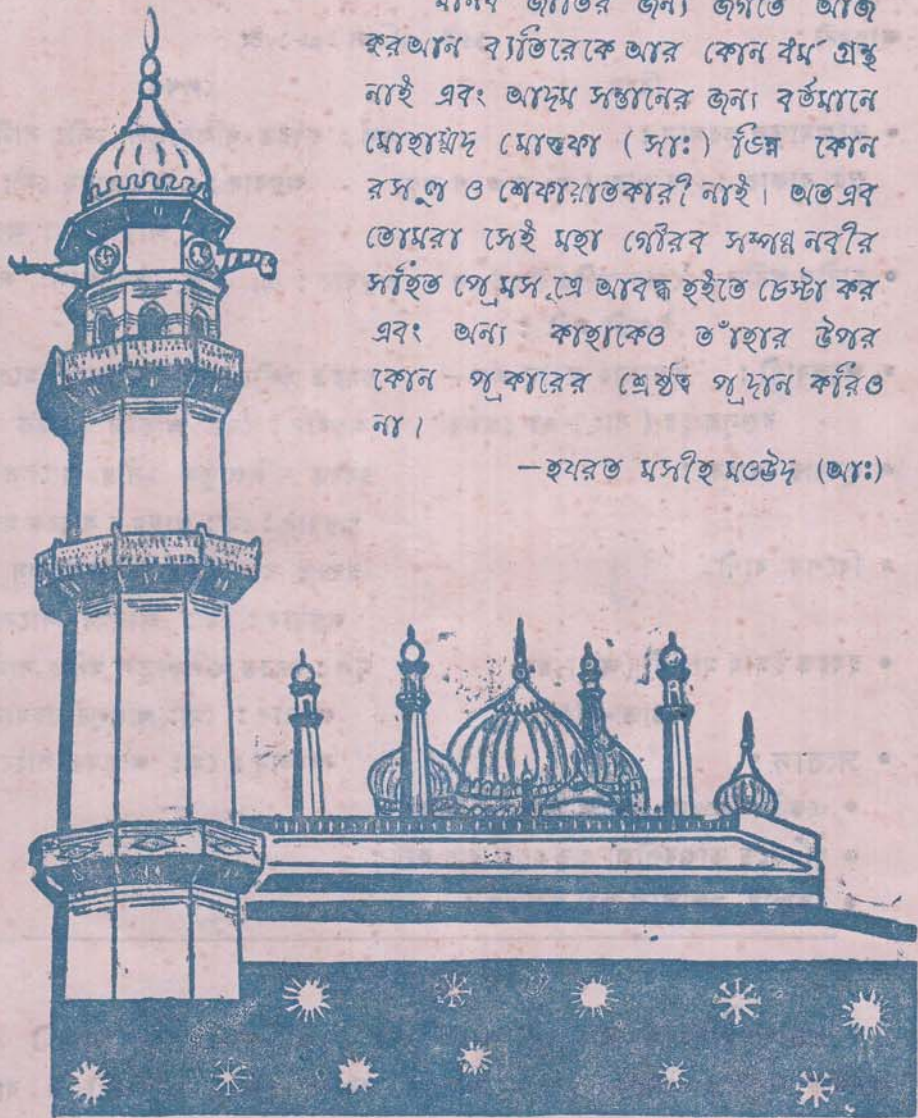 মানব জাতির জন্য জগতে আজ
কুরআন ব্যতিরেকে আর কোন ধর্ম গ্রন্থ
নাই এবং আদম সন্তানের জন্য বর্তমানে
মোহাম্মদ মোস্তফা (সাঃ) ভিন্ন কোন
রসূল ও শেফায়াতকারী নাই। অতএব
তোমরা সেই মহা গৌরব সম্পন্ন নবীর
সহিত প্রেমসূত্রে আবদ্ধ হইতে চেস্টা কর
এবং অন্য কাহাকেও তাঁহার উপর
কোন প্রকারের শ্রেষ্ঠত্ব প্রদান করিও
না।
—হযরত মসীহ মওউদ (আঃ)